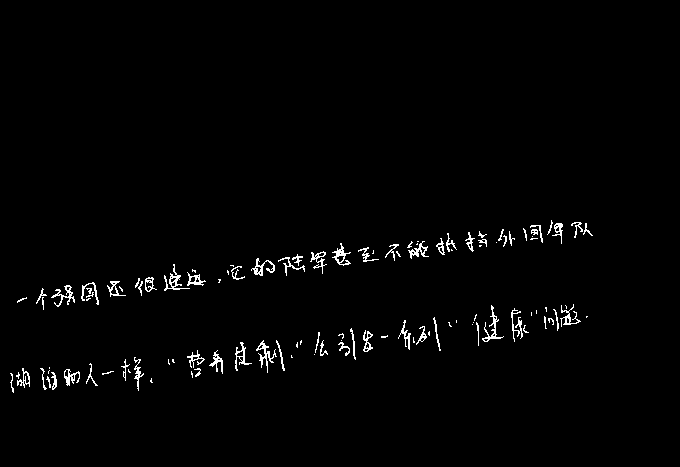 一个强国还很遥远，它的陆军甚至不能抵挡外国军队
湖泊如人一样，“营养过剩”会引发一系列“健康”问题．